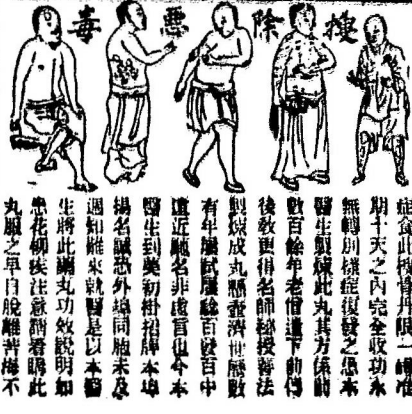 搜除惡毒
症食此搜丹限一准
期十天之內完全收功永
無轉別樣症復發之患本
醫生製煉此丸其方係前
數百餘年老僧遺下前傳
後教更得名師秘授善法
製煉成丸懸壺濟世歷數
有年屢試屢驗百發百中
遠近馳名非虛言也今本
醫生到美初掛招牌本埠
揚名誠恐外埠同胞未及
週知難來就醫是以本醫
生將此丸功效說明如
患花柳疾注意請看購此
丸服之早自脫離苦海不